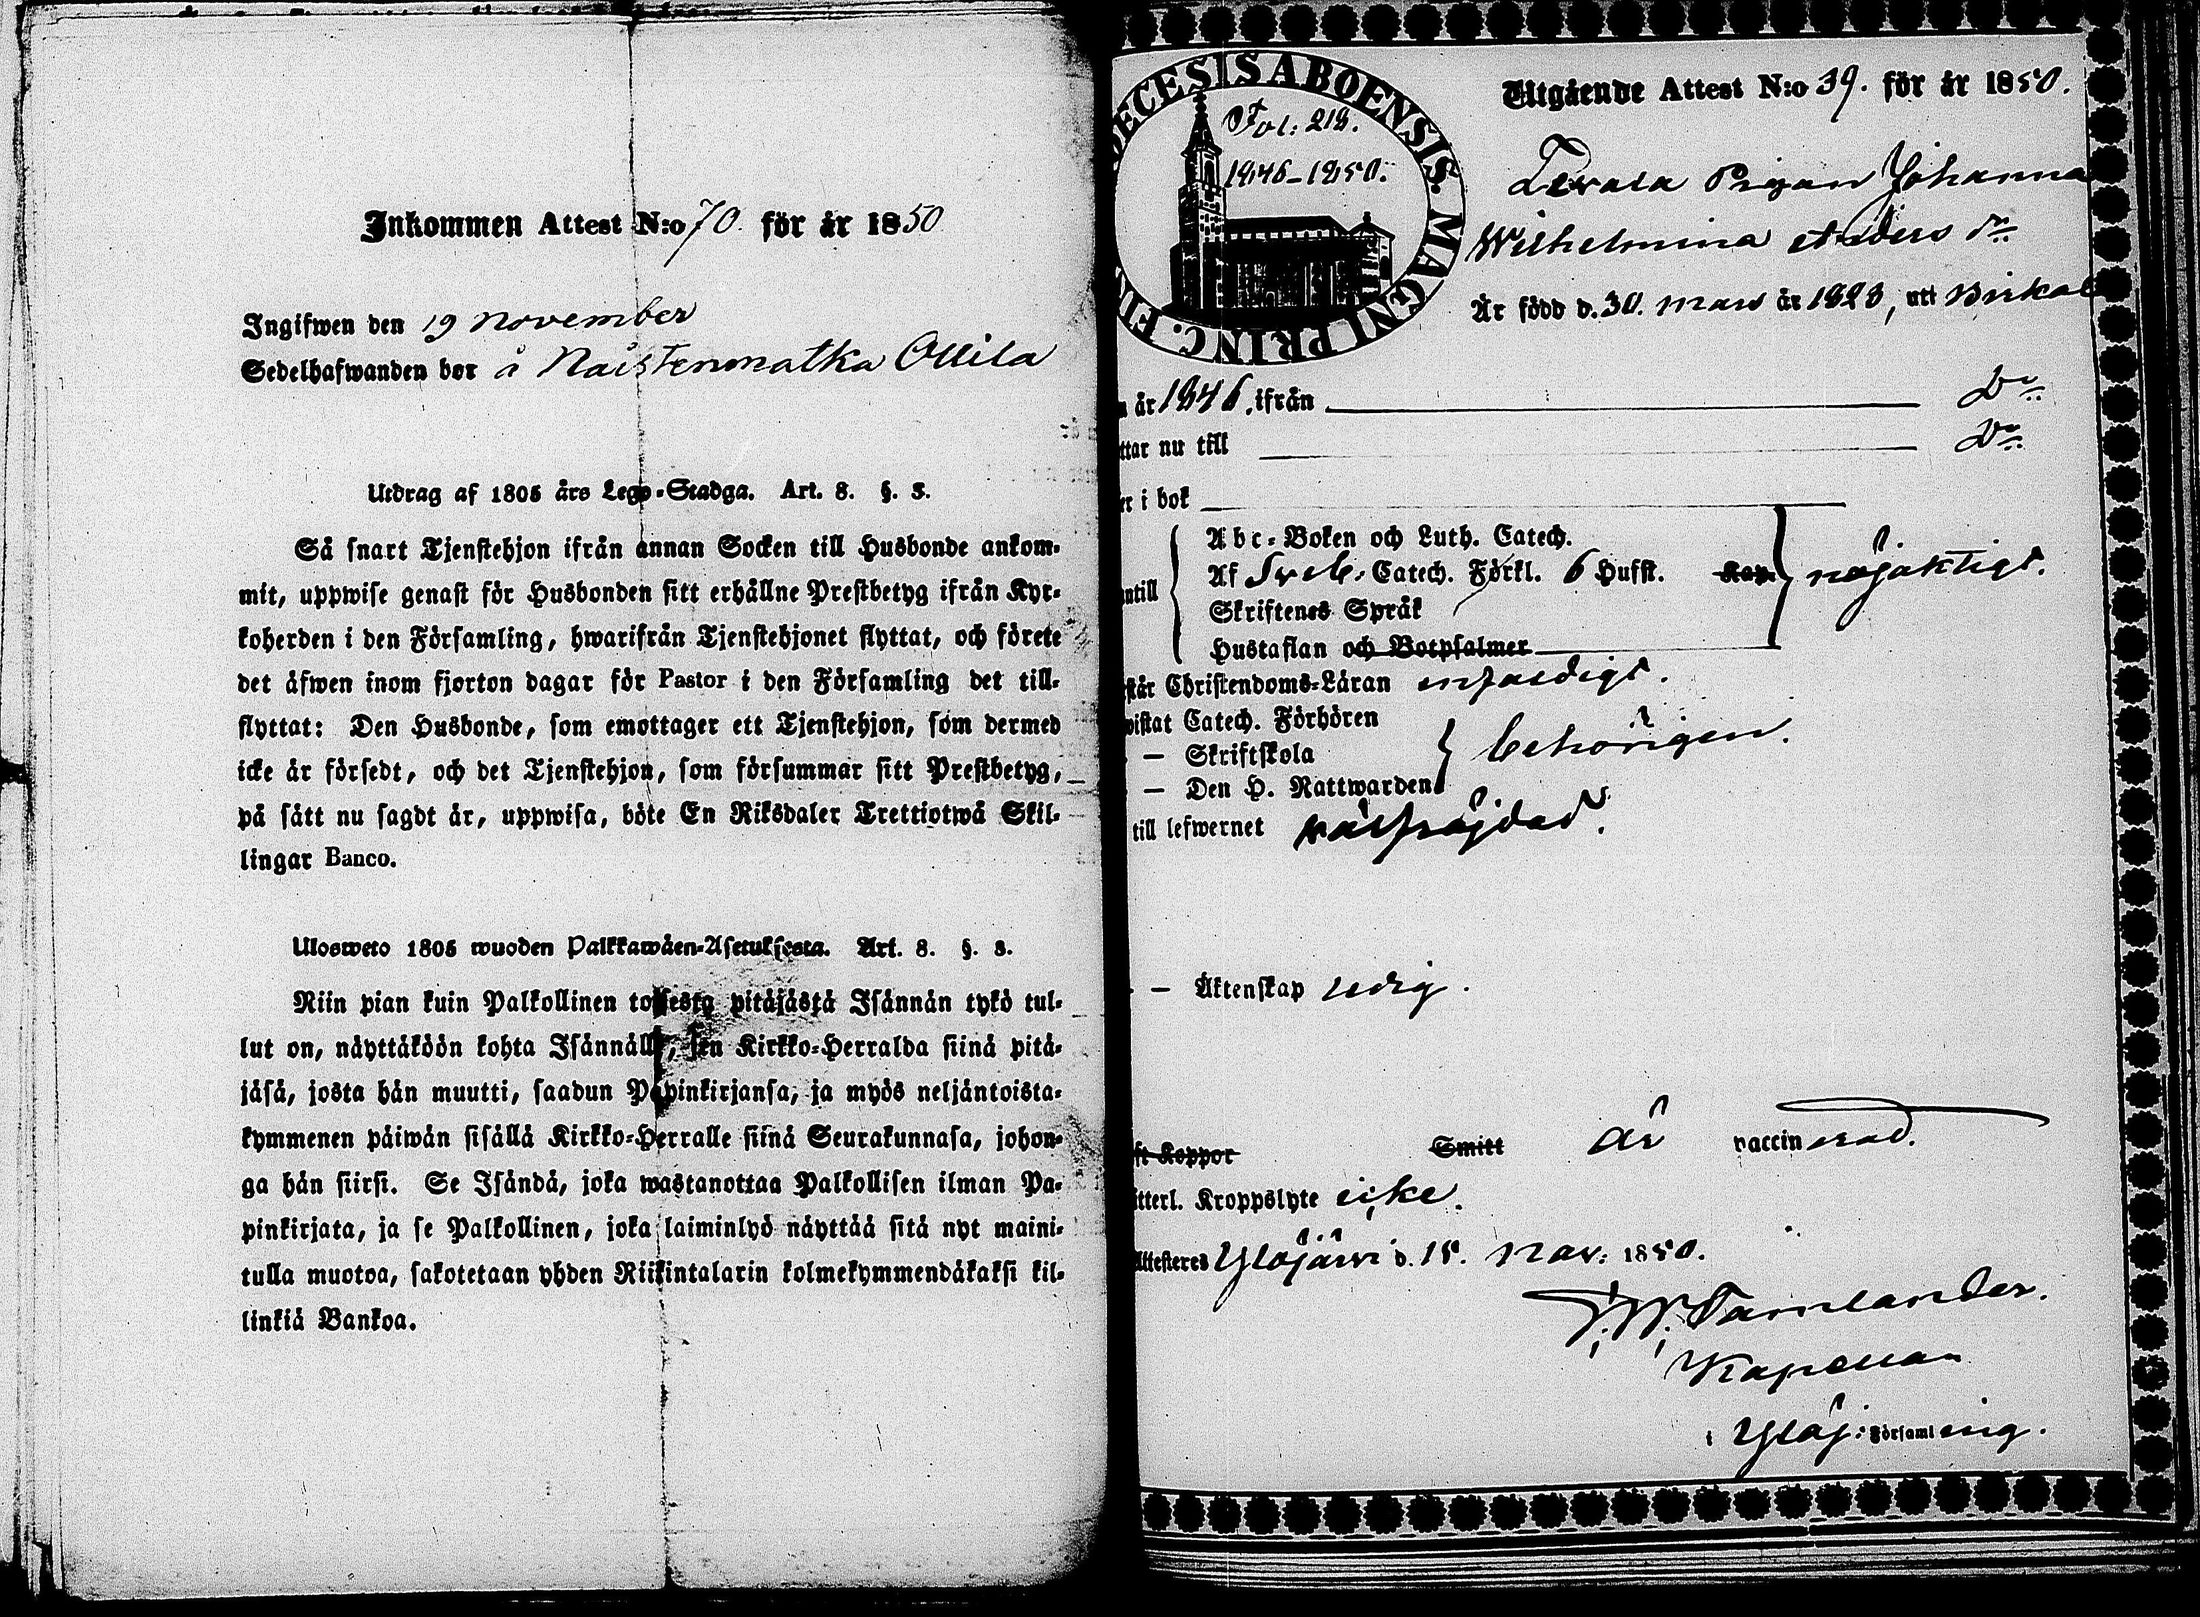 Inkommen Attest N:o 70. för år 1850
Ingifwen den 19 November
Sedelhafwanden bor å Naistenmatka Ollila
Utdrag af 1805 års Lego-Stadga. Art. 8. §. 3.
Så snart Tjenstehjon ifrån annan Socken till Husbonde ankom-
mit, uppwise genast för Husbonden sitt erhållne Prestbetyg ifrån Kyr-
koherden i den Församling, hwarifrån Tjenstehjonet flyttat, och förete
det äfwen inom fjorton dagar för Pastor i den Församling det till-
flyttat: Den Husbonde, som emottager ett Tjenstehjon, som dermed
icke är försedt, och det Tjenstehjon, som försummar sitt Prestbetyg,
på sätt nu sagdt är, uppwisa, böte En Riksdaler Trettiotwå Skil-
lingar Banco.
Ulosweto 1805 wuoden Palkkawäen-Asetuksesta. Art. 8. §. 3.
Niin pian kuin Palkollinen toisesta pitäjästä Isännän tykö tul-
lut on, näyttäköön kohta Isännälle, sen Kirkko-Herralda siinä pitä-
jäsä, josta hän muutti, saadun Papinkirjansa, ja myös neljäntoista-
kymmenen päiwän sisällä Kirkko-Herralle siinä Seurakunnasa, johon-
ga hän siirsi. Se Isändä, joka wastanottaa Palkollisen ilman Pa-
pinkirjata, ja se Palkollinen, joka laiminlyö näyttää sitä nyt maini-
tulla muotoa, sakotetaan yhden Riikintalarin kolmekymmendäkaksi kil-
linkiä Bankoa.
DECESIS ABOENSIS. MAGNI PRINC. FIN
Fol: 218.
1846-1850.
Utgående Attest N:o 39. för år 1850.
Pigan Johanna
Wilhelmina Anders dr
Är född d. 30. Mars år 1828, uti Birkala
n år 1846. ifrån Do
ttar nu till Do
er i bok
ntill
Abc-Boken och Luth. Catech.
Af Sveb. Catech. Förkl. 6 Hufst. Kap.
Skriftenes Språk
Hustaflan och Botpsalmer
nöjaktigt.
står Christendoms-Läran enfaldigt.
vistat Catech. Förhören
— Skriftskola
— Den H. Nattwarden
behörigen.
till lefwernet välfräjdad.
— Äktenskap ledig.
ft Koppor Smitt är vaccinerad.
tterl. Kroppslyte icke.
Attesteres Ylöjärvi d. 18. Nov. 1850.
Tamlander.
Kapellan
i Ylöj: Församling.